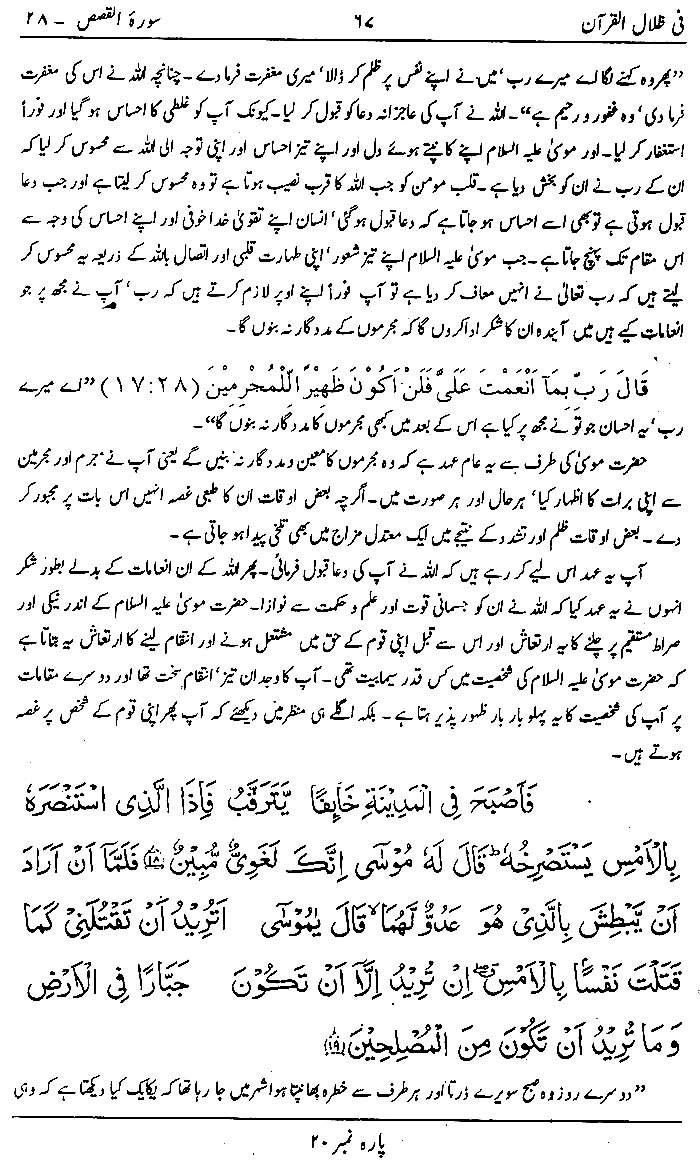 فی ظلال القرآن ۶۷ سورۃ القصص - ۲۸
”پھر وہ کہنے لگا اے میرے رب‘ میں نے اپنے نفس پر ظلم کر ڈالا‘ میری مغفرت فرما دے۔ چنانچہ اللہ نے اس کی مغفرت
فرما دی‘ وہ غفور و رحیم ہے“۔ اللہ نے آپ کی عاجزانہ دعا کو قبول کر لیا۔ کیونکہ آپ کو غلطی کا احساس ہو گیا اور فوراً
استغفار کر لیا۔ اور موسیٰ علیہ السلام اپنے کانپتے ہوئے دل اور اپنے تیز احساس اور اپنی توجہ الی اللہ سے محسوس کر لیا کہ
ان کے رب نے ان کو بخش دیا ہے۔ قلب مومن کو جب اللہ کا قرب نصیب ہوتا ہے تو وہ محسوس کر لیتا ہے اور جب دعا
قبول ہوتی ہے تو بھی اسے احساس ہو جاتا ہے کہ دعا قبول ہو گئی‘ انسان اپنے تقویٰ خدا خوفی اور اپنے احساس کی وجہ سے
اس مقام تک پہنچ جاتا ہے۔ جب موسیٰ علیہ السلام اپنے تیز شعور‘ اپنی طہارت قلبی اور اتصال باللہ کے ذریعہ یہ محسوس کر
لیتے ہیں کہ رب تعالیٰ نے انہیں معاف کر دیا ہے تو آپ فوراً اپنے اوپر لازم کرتے ہیں کہ رب‘ آپ نے مجھ پر جو
انعامات کیے ہیں میں آیندہ ان کا شکر ادا کروں گا کہ مجرموں کے مددگار نہ بنوں گا۔
قَالَ رَبِّ بِمَآ اَنْعَمْتَ عَلَيَّ فَلَنْ اَكُوْنَ ظَهِيْرًا لِّلْمُجْرِمِيْنَ (۱۷:۲۸) ”اے میرے
رب‘ یہ احسان جو تو نے مجھ پر کیا ہے اس کے بعد میں کبھی مجرموں کا مددگار نہ بنوں گا“۔
حضرت موسیٰ کی طرف سے یہ عام عہد ہے کہ وہ مجرموں کا معین و مددگار نہ بنیں گے یعنی آپ نے جرم اور مجرمین
سے اپنی برات کا اظہار کیا‘ ہر حال اور ہر صورت میں۔ اگرچہ بعض اوقات ان کا طبعی غصہ انہیں اس بات پر مجبور کر
دے۔ بعض اوقات ظلم اور تشدد کے نتیجے میں ایک معتدل مزاج میں بھی تلخی پیدا ہو جاتی ہے۔
آپ یہ عہد اس لیے کر رہے ہیں کہ اللہ نے آپ کی دعا قبول فرمائی۔ پھر اللہ کے ان انعامات کے بدلے بطور شکر
انہوں نے یہ عہد کیا کہ اللہ نے ان کو جسمانی قوت اور علم و حکمت سے نوازا۔ حضرت موسیٰ علیہ السلام کے اندر نیکی اور
صراط مستقیم پر چلنے کا یہ ارتعاش اور اس سے قبل اپنی قوم کے حق میں مشتعل ہونے اور انتقام لینے کا ارتعاش یہ بتاتا ہے
کہ حضرت موسیٰ علیہ السلام کی شخصیت میں کس قدر سیمابیت تھی۔ آپ کا وجدان تیز‘ انتقام سخت تھا اور دوسرے مقامات
پر آپ کی شخصیت کا یہ پہلو بار بار ظہور پذیر ہوتا ہے۔ بلکہ اگلے ہی منظر میں دیکھئے کہ آپ پھر اپنی قوم کے شخص پر غصہ
ہوتے ہیں۔
فَاَصْبَحَ فِى الْمَدِيْنَةِ خَآئِفًا يَّتَرَقَّبُ فَاِذَا الَّذِى اسْتَنْصَرَهٗ
بِالْاَمْسِ يَسْتَصْرِخُهٗ ؕ قَالَ لَهٗ مُوْسٰٓى اِنَّكَ لَغَوِىٌّ مُّبِيْنٌ ﴿۱۸﴾ فَلَمَّآ اَنْ اَرَادَ
اَنْ يَّبْطِشَ بِالَّذِىْ هُوَ عَدُوٌّ لَّهُمَا ۙ قَالَ يٰمُوْسٰٓى اَتُرِيْدُ اَنْ تَقْتُلَنِىْ كَمَا
قَتَلْتَ نَفْسًۢا بِالْاَمْسِ ۖ اِنْ تُرِيْدُ اِلَّآ اَنْ تَكُوْنَ جَبَّارًا فِى الْاَرْضِ
وَمَا تُرِيْدُ اَنْ تَكُوْنَ مِنَ الْمُصْلِحِيْنَ ﴿۱۹﴾
”دوسرے روز وہ صبح سویرے ڈرتا اور ہر طرف سے خطرہ بھانپتا ہوا شہر میں جا رہا تھا کہ یکایک کیا دیکھتا ہے کہ وہی
پارہ نمبر ۲۰